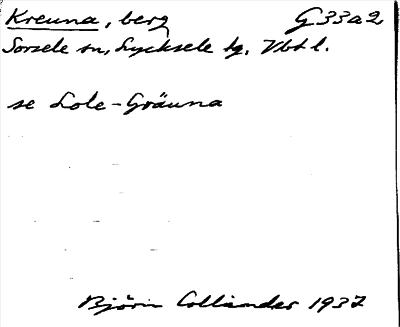 Kreuna, berg G33a2
Sorsele sn, Lycksele tg. Vbt l.
se Lole-Gräuna
Björn Collinder 1937